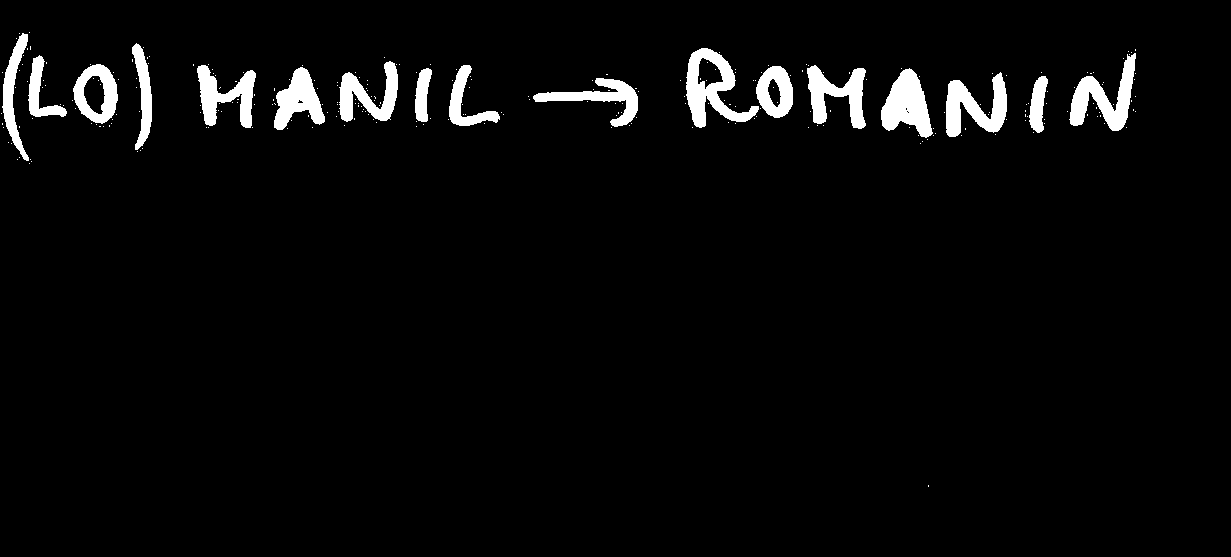 (LO) MANIL → ROMANIN